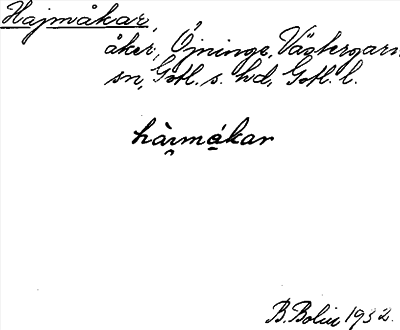 Hajmåkar,
åker, Öjninge, Västergarn
sn, Gotl. s. hd, Gotl. l.
hàimákar
B. Bolin 1932.